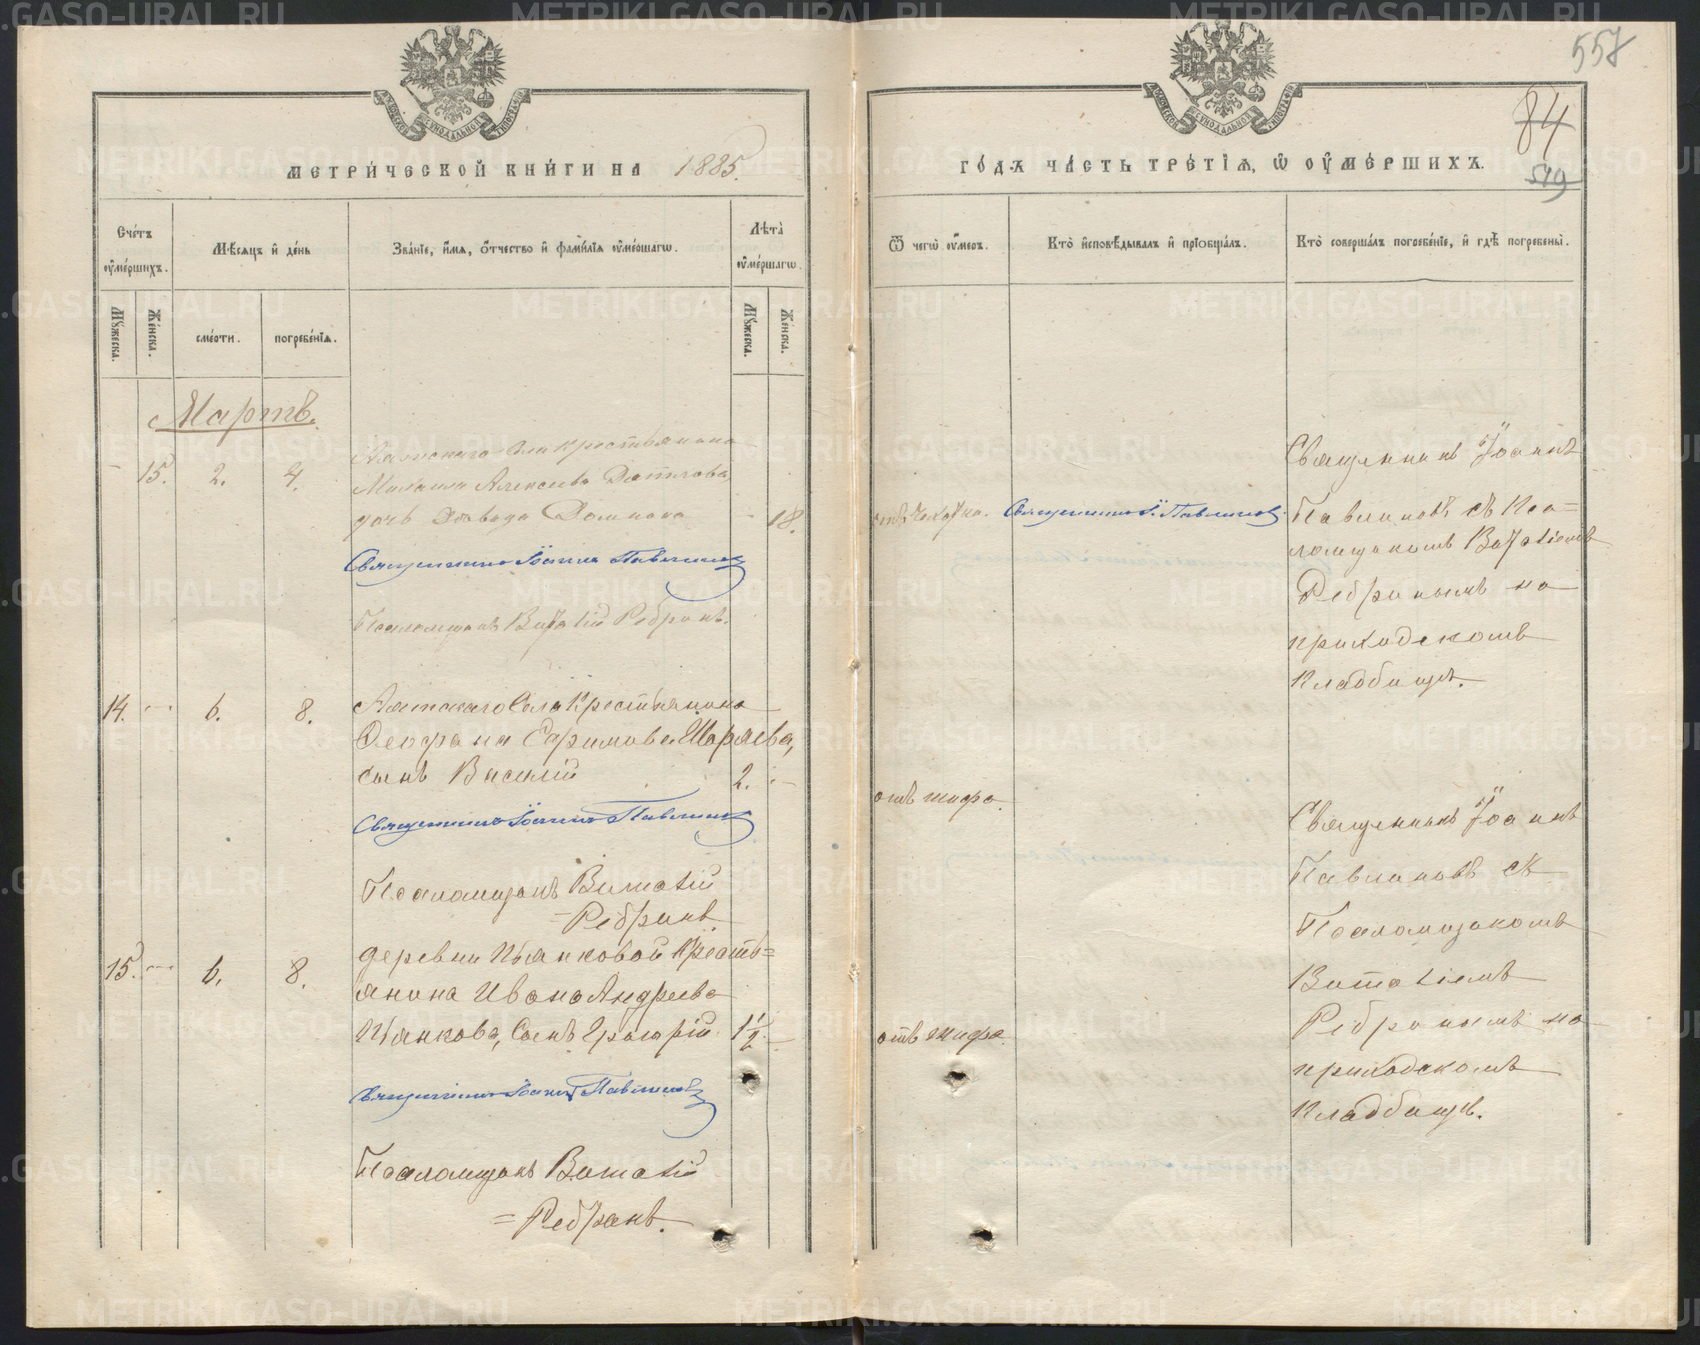 557
84
519
МЕТРИ́ЧЕСКОЙ КНИ́ГИ НА 1885.
ГО́ДЪ ЧА́СТЬ ТРЕ́ТІѦ, Ѽ ОУ҆МЕ́РШИХЪ.
Сче́тъ оу҆ме́ршихъ.
Мѣ́сѧцъ и҆ де́нь
Зва́нїе, и҆́мѧ, ѻ҆́тчество и҆ фами́лїѧ оу҆ме́ршагѡ.
Лѣ́та оу҆ме́ршагѡ.
Ѿ чегѡ̀ оу҆́меръ.
Кто̀ и҆сповѣ́дывалъ и҆ прїѻбща́лъ.
Кто̀ соверша́лъ погребе́нїе, и҆ гдѣ̀ погребены̀.
Мꙋ́жеска.
Же́нска.
сме́рти.
погребе́нїѧ.
Мꙋ́жеска.
Же́нска.
Мартъ.
15. 2. 4.
Аятскаго Села Крестьянина
Алексѣева
дочь Домника 18.
Священникъ Іоаннъ Павлиновъ
Псаломщикъ Виталій Ребринъ.
отъ
Священникъ І. Павлиновъ.
Священникъ Іоаннъ
Павлиновъ съ Пса=
ломщикомъ Виталіемъ
Ребринымъ на
приходскомъ
Кладбищѣ.
14. 6. 8.
Аятскаго Села Крестьянина
Ефимова Ширяева,
сынъ Василій 2.
Священникъ Іоаннъ Павлиновъ
Псаломщикъ Виталій
Ребринъ
отъ тифа.
Священникъ Іоаннъ
Павлиновъ съ
Псаломщикомъ
Виталіемъ
Ребринымъ на
приходскомъ
Кладбищѣ.
15. 6. 8.
деревни Пьянковой Кресть=
янина Ивана Андреева
Пьянкова, Сынъ Григорій 1½
Священникъ Іоаннъ Павлиновъ
Псаломщикъ Виталій
=Ребринъ.
отъ тифа.
METRIKI.GASO-URAL.RU